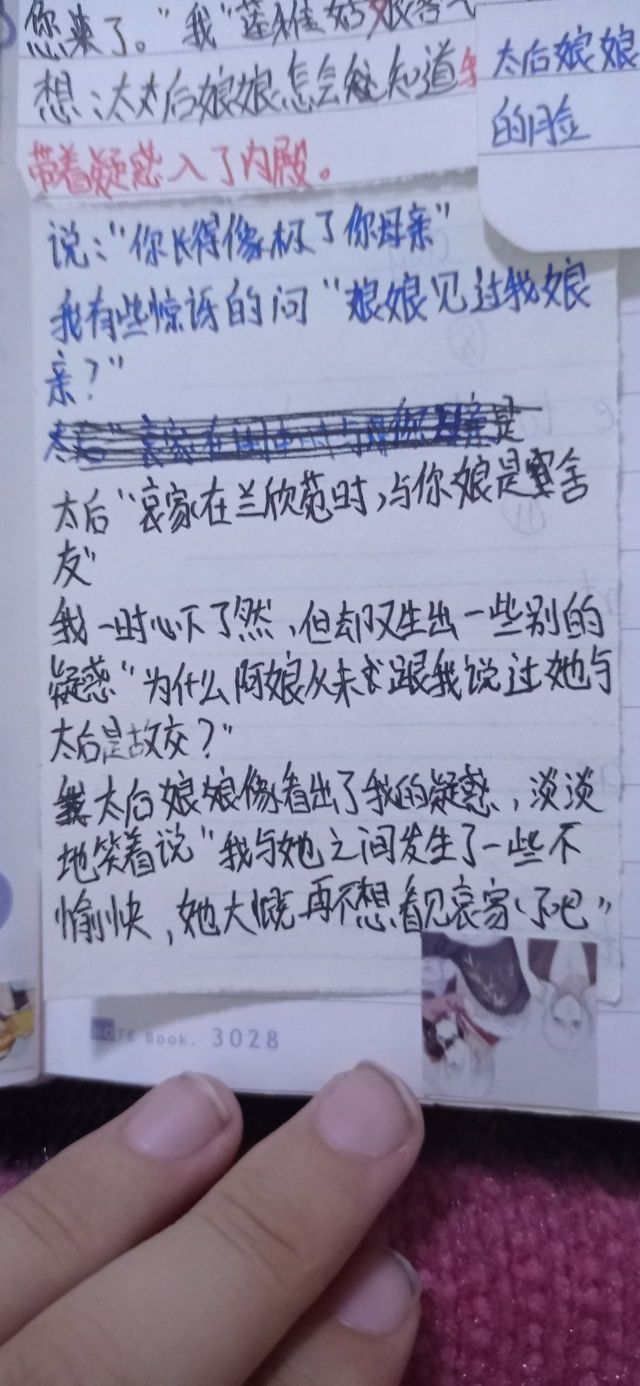 您来了。"我"莲
想：太太后娘娘怎会知道
太后娘娘
的脸
带着疑惑入了内殿。
说："你长得像极了你母亲"
我有些惊讶的问"娘娘见过我娘
亲？"
是
太后"哀家在兰欣苑时，与你娘是舍
友"
我一时心下了然，但却又生出一些别的
疑惑"为什么阿娘从未跟我说过她与
太后是故交？"
太后娘娘像看出了我的疑惑，淡淡
地笑着说"我与她之间发生了一些不
愉快，她大概再不想看见哀家了吧"
NOTE Book. 3028